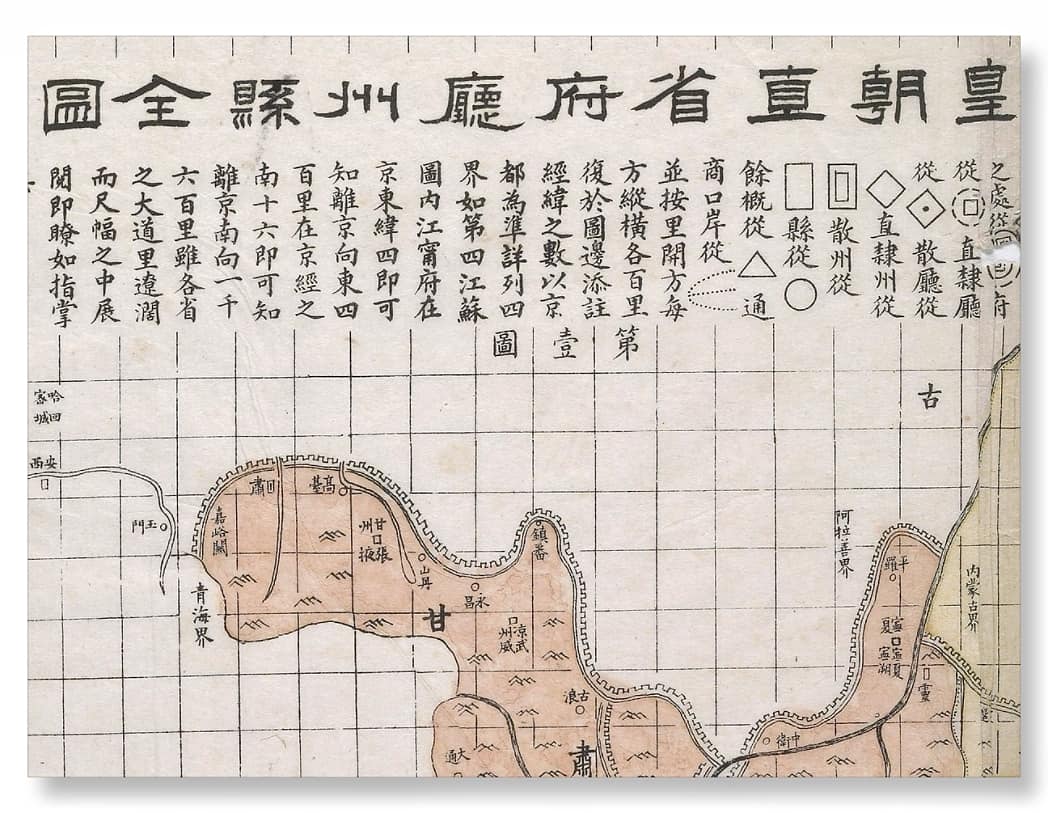 皇朝直省府廳州縣全圖
之處從
府
從
直隸廳
從
散廳從
直隸州從
散州從
縣從
餘概從
通
商口岸從
並按里開方每
方縱橫各百里
復於圖邊添註
經緯之數以京
都為準詳列四
界如第四江蘇
圖內江甯府在
京東緯四即可
知離京向東四
百里在京經之
南十六即可知
離京南向一千
六百里雖各省
之大道里遼濶
而尺幅之中展
閱即瞭如指掌
第壹圖
古
哈密
回城
安西
玉門
嘉峪關
肅
高臺
甘州
張掖
山丹
青海界
甘
永昌
鎮番
涼州
武威
古浪
肅
大通
阿拉善界
平羅
內蒙古界
寧夏
寧夏
寧朔
靈
中衛